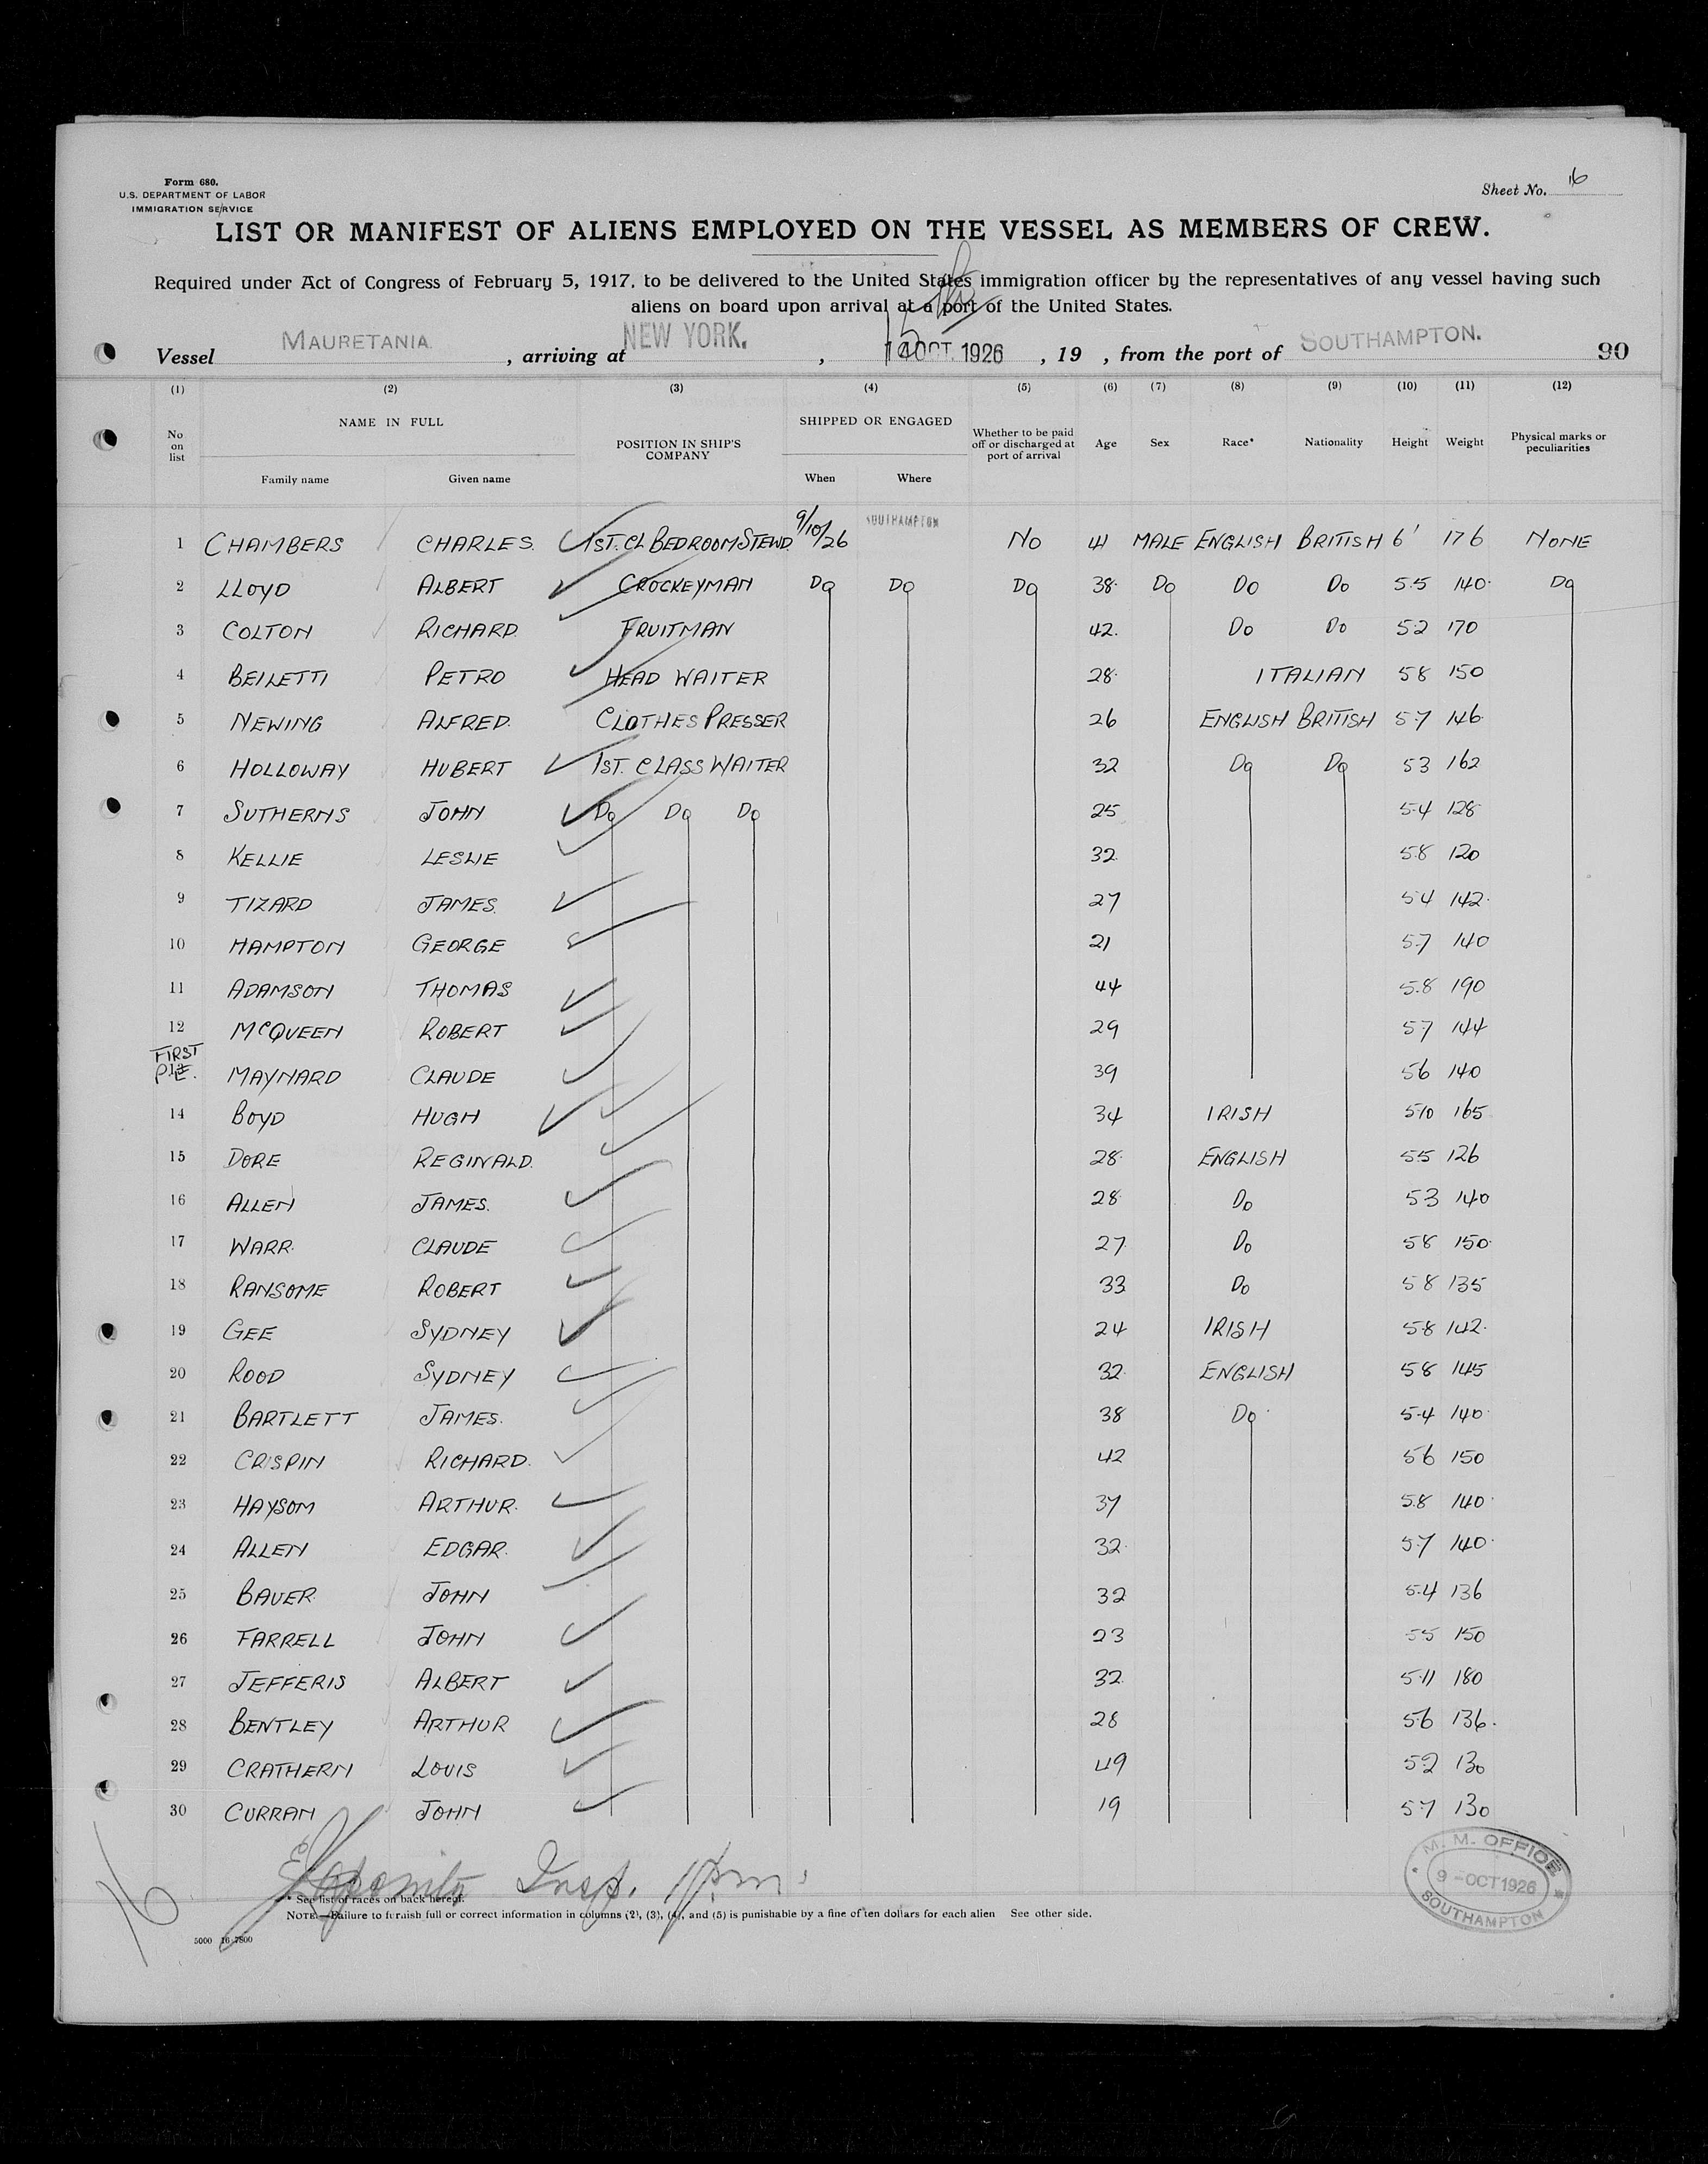 Form 680.
U.S. DEPARTMENT OF LABOR
IMMIGRATION SERVICE
Sheet No. 16
LIST OR MANIFEST OF ALIENS EMPLOYED ON THE VESSEL AS MEMBERS OF CREW.
Required under Act of Congress of February 5, 1917, to be delivered to the United States immigration officer by the representatives of any vessel having such
aliens on board upon arrival at a port of the United States.
Vessel MAURETANIA , arriving at NEW YORK. , 14 OCT. 1926 , 19 , from the port of SOUTHAMPTON. 90
(1) (2) (3) (4) (5) (6) (7) (8) (9) (10) (11) (12)
No on list NAME IN FULL Family name Given name POSITION IN SHIP'S COMPANY SHIPPED OR ENGAGED When Where Whether to be paid off or discharged at port of arrival Age Sex Race* Nationality Height Weight Physical marks or peculiarities
1 CHAMBERS CHARLES. 1ST. CL BEDROOM STEWD 9/10/26 SOUTHAMPTON NO 41 MALE ENGLISH BRITISH 6' 176 NONE
2 LLOYD ALBERT CROCKEYMAN DO DO DO 38. DO DO DO 5.5 140. DO
3 COLTON RICHARD. FRUITMAN 42. DO DO 5.2 170
4 BEILETTI PETRO HEAD WAITER 28. ITALIAN 5 8 150
5 NEWING ALFRED. CLOTHES PRESSER 26 ENGLISH BRITISH 5.7 146.
6 HOLLOWAY HUBERT 1ST. CLASS WAITER 32 DO DO 5 3 162
7 SUTHERNS JOHN DO DO DO 25 5.4 128
8 KELLIE LESLIE 32. 5.8 120
9 TIZARD JAMES. 27 5 4 142.
10 HAMPTON GEORGE 21 5.7 140
11 ADAMSON THOMAS 44 5.8 190
12 McQUEEN ROBERT 29 5 7 144
FIRST
MAYNARD CLAUDE 39 5 6 140
14 BOYD HUGH 34 IRISH 5 10 165
15 DORE REGINALD. 28. ENGLISH 5 5 126
16 ALLEN JAMES. 28 DO 5 3 140
17 WARR. CLAUDE 27 DO 5 8 150.
18 RANSOME ROBERT 33 DO 5 8 135
19 GEE SYDNEY 24 IRISH 5.8 142.
20 ROOD SYDNEY 32. ENGLISH 5 8 145
21 BARTLETT JAMES. 38 DO 5.4 140.
22 CRISPIN RICHARD. 42 5 6 150
23 HAYSOM ARTHUR. 37 5.8 140.
24 ALLEN EDGAR. 32. 5.7 140.
25 BAUER. JOHN 32 5.4 136
26 FARRELL JOHN 23 5 5 150
27 JEFFERIS ALBERT 32. 5.11 180
28 BENTLEY ARTHUR 28 5.6 136.
29 CRATHERN LOUIS 49 5 2 130
30 CURRAN JOHN 19 5.7 130
16 Insp.
* See list of races on back hereof.
NOTE.—Failure to furnish full or correct information in columns (2), (3), (4), and (5) is punishable by a fine of ten dollars for each alien See other side.
5000 16-7800
M. M. OFFICE
9 - OCT 1926
SOUTHAMPTON